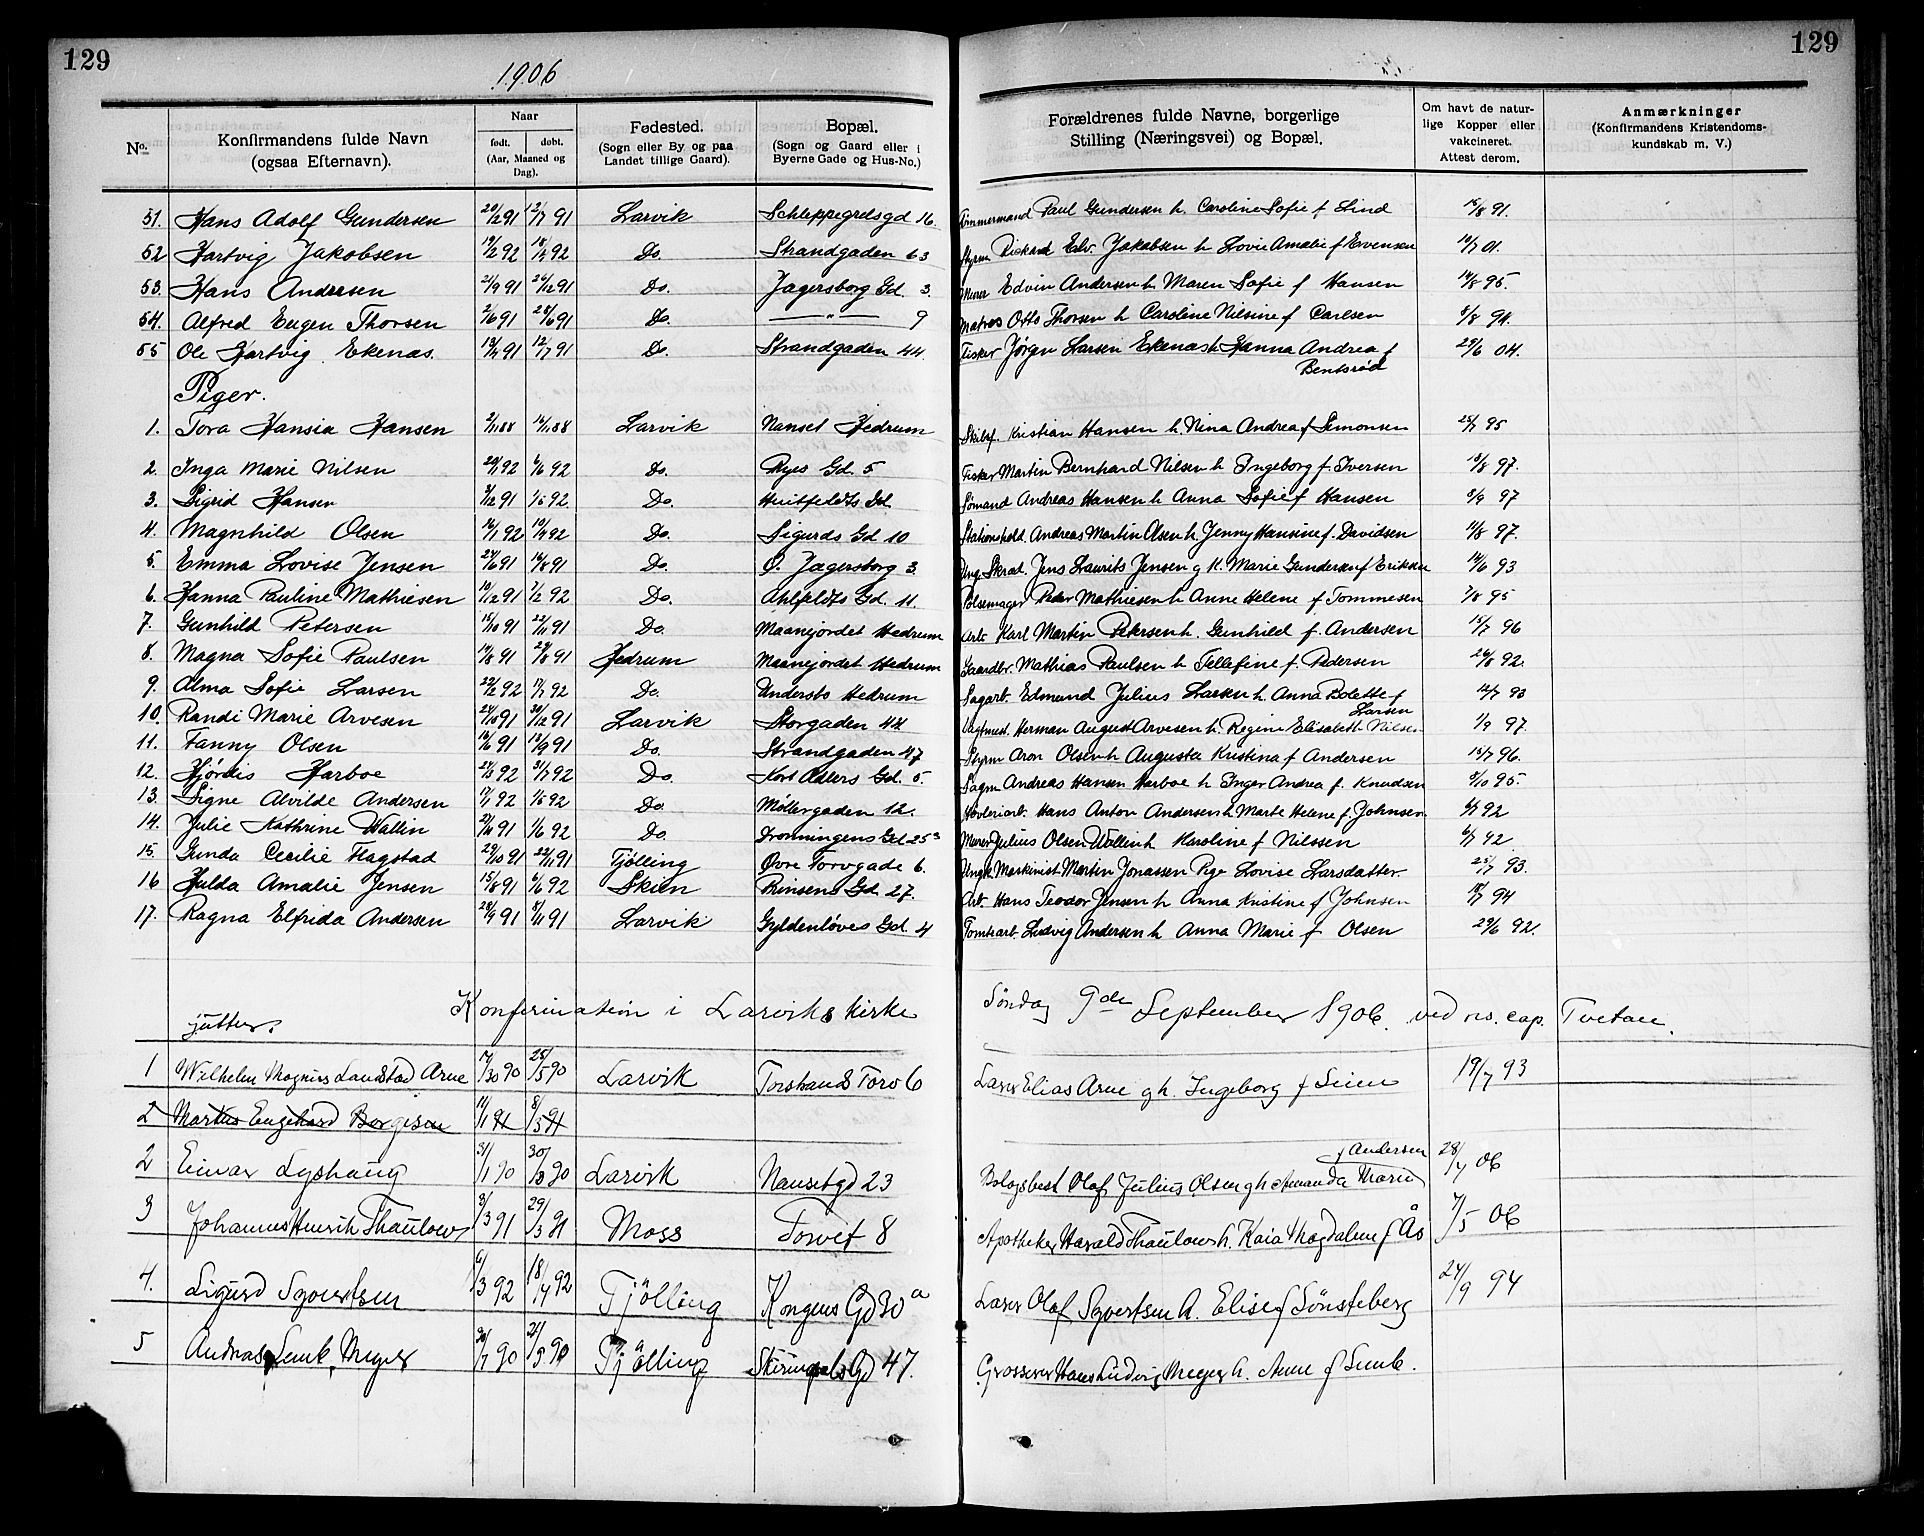 129
129
1906
No.
Konfirmandens fulde Navn
(ogsaa Efternavn).
Naar
født.
døbt.
(Aar, Maaned og
Dag).
Fødested.
(Sogn eller By og paa
Landet tillige Gaard).
Bopæl.
(Sogn og Gaard eller i
Byerne Gade og Hus-No.)
Forældrenes fulde Navne, borgerlige
Stilling (Næringsvei) og Bopæl.
Om havt de natur-
lige Kopper eller
vakcineret.
Attest derom.
Anmærkninger
(Konfirmandens Kristendoms-
kundskab m. V.)
51. Hans Adolf Gundersen 20/2 91 12/7 91 Larvik Schleppegrelsgd 16 Tømmermand Paul Gundersen h. Caroline Sofie f Lind 15/8 91.
52 Hartvig Jakobsen 19/2 92 18/4 92 Do Strandgaden 63 Styrm Rickard Edv. Jakobsen h Lovise Amalie f Evensen 10/7 01.
53. Hans Andersen 21/9 91 26/12 91 Do. Jagersborg Gd. 3. Murer Edvin Andersen h. Maren Sofie f Hansen 14/8 95.
54. Alfred Eugen Thorsen 2/6 91 28/6 91 Do. — " — 9 Matros Otto Thorsen h Caroline Nilsine f Carlsen 8/8 94.
55 Ole Hartvig Ekenæs. 13/4 91 12/7 91 Do. Strandgaden 44. Fisker Jørgen Larsen Ekenæs h. Hanna Andrea f 29/6 04.
Bentsrød
Piger.
1. Tora Hansia Hansen 2/11 88 14/11 88 Larvik Nanset Hedrum Kristian Hansen h. Nina Andrea f Simonsen 25/7 95
2. Inga Marie Nilsen 20/1 92 6/6 92 Do. Ryes Gd. 5 Fisker Martin Bernhard Nilsen h Ingeborg f. Iversen 13/8 97.
3. Sigrid Hansen 3/12 91 1/5 92 Do. Huitfeldts Gd Sømand Andreas Hansen h Anna Sofie f Hansen 3/9 97
4. Magnhild Olsen 14/1 92 10/4 92 Do. Sigurds Gd 10 Stationshold. Andreas Martin Olsen h. Jenny Hansine f. Davidsen 11/8 97.
5. Emma Lovise Jensen 24/6 91 16/8 91 Do. Ø. Jagersborg 3. Ung. Skræd. Jens Laurits Jensen g K. Marie Gundersen f Eriksen 14/6 93
6. Hanna Pauline Mathiesen 10/12 91 7/2 92 Do. Ahlfeldts Gd. 11. Pølsemager Peder Mathiesen h Anne Helene f Tommesen 7/8 95
7. Gunhild Petersen 15/10 91 22/11 91 Do. Maanejordet Hedrum Arb. Karl Martin Petersen h. Gunhild f. Andersen 15/7 96
8. Magna Sofie Paulsen 14/8 91 27/8 91 Hedrum Maanejordet Hedrum Gaardbr. Mathias Paulsen h Tellefine f. Pedersen 26/8 92.
9. Alma Sofie Larsen 22/2 92 17/7 92 Do. Undersbo Hedrum Sagarb. Edmund Julius Larsen h. Anna Bolette f 12/7 93
Larsen
10. Randi Marie Arvesen 24/10 91 30/12 91 Larvik Storgaden 44 Herman August Arvesen h. Regine Elisabeth Nilsen 1/9 97.
11. Fanny Olsen 16/6 91 13/9 91 Do. Strandgaden 47 Styrm Aron Olsen h Augusta Kristina f Andersen 15/7 96.
12. Hjørdis Harboe 27/3 92 31/7 92 Do. Kort Adlers Gd. 5. Sagm Andreas Hansen Harboe h Inger Andrea f. Knudsen 9/10 95.
13. Signe Alvilde Andersen 17/1 92 1/5 92 Do Møllergaden 12. Høvleriarb. Hans Anton Andersen h Marte Helene f. Johnsen 6/7 92
14. Julie Kathrine Wallin 27/11 91 1/6 92 Do. Dronningens Gd 25 3 Murer Julius Olsen Wallin h Karoline f Nilssen 6/7 92
15. Gunda Cecilie Flagstad 29/10 91 22/11 91 Tjølling Øvre Torvgade 6. Ungk. Maskinist Martin Jonassen Pige Lovise Larsdatter. 25/7 93.
16 Hulda Amalie Jensen 15/8 91 6/6 92 Skien Prinsens Gd. 27. Arb. Hans Teodor Jensen h Anna Kristine f Johnsen 18/7 94
17. Ragna Elfrida Andersen 28/9 91 8/11 91 Larvik Gyldenløves Gd. 4 Tomtearb. Ludvig Andersen h Anna Marie f Olsen 29/6 92.
Konfirmation i Larviks kirke Søndag 9de September 1906. ved res. cap. Tvetan.
gutter.
1 Wilhelm Magnus Landstad Arne 25/5 90 Larvik Torstrands Torv 6 Elias Arne g h. Ingeborg f Seim 19/7 93
2 Markus Engehard Borgesen 11/1 91 8/3 91
2 Einar Lyshaug 31/1 90 30/3 90 Larvik Nansetgd 23 Bologsbest Olaf Julius Olsen gh Amanda Marie f Andersen 28/7 06
3 Johannes Henrik Thaulow 3/3 91 29/3 91 Moss Torvet 8 Apotheker Harald Thaulow h. Kaia Magdalene f Ås 7/5 06
4. Sigurd Syvertsen 6/3 92 18/4 92 Tjölling Kongens Gd 30 a Olaf Syvertsen h. Elise f Sönsteberg 24/9 94
5 Andreas Semb Meyer Tjölling Gd 47. Grosserer Hans Ludvig Meyer h. Anne f Semb.